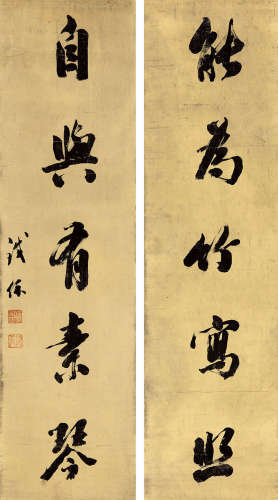 能為竹寫照
自與有素琴
鐵保